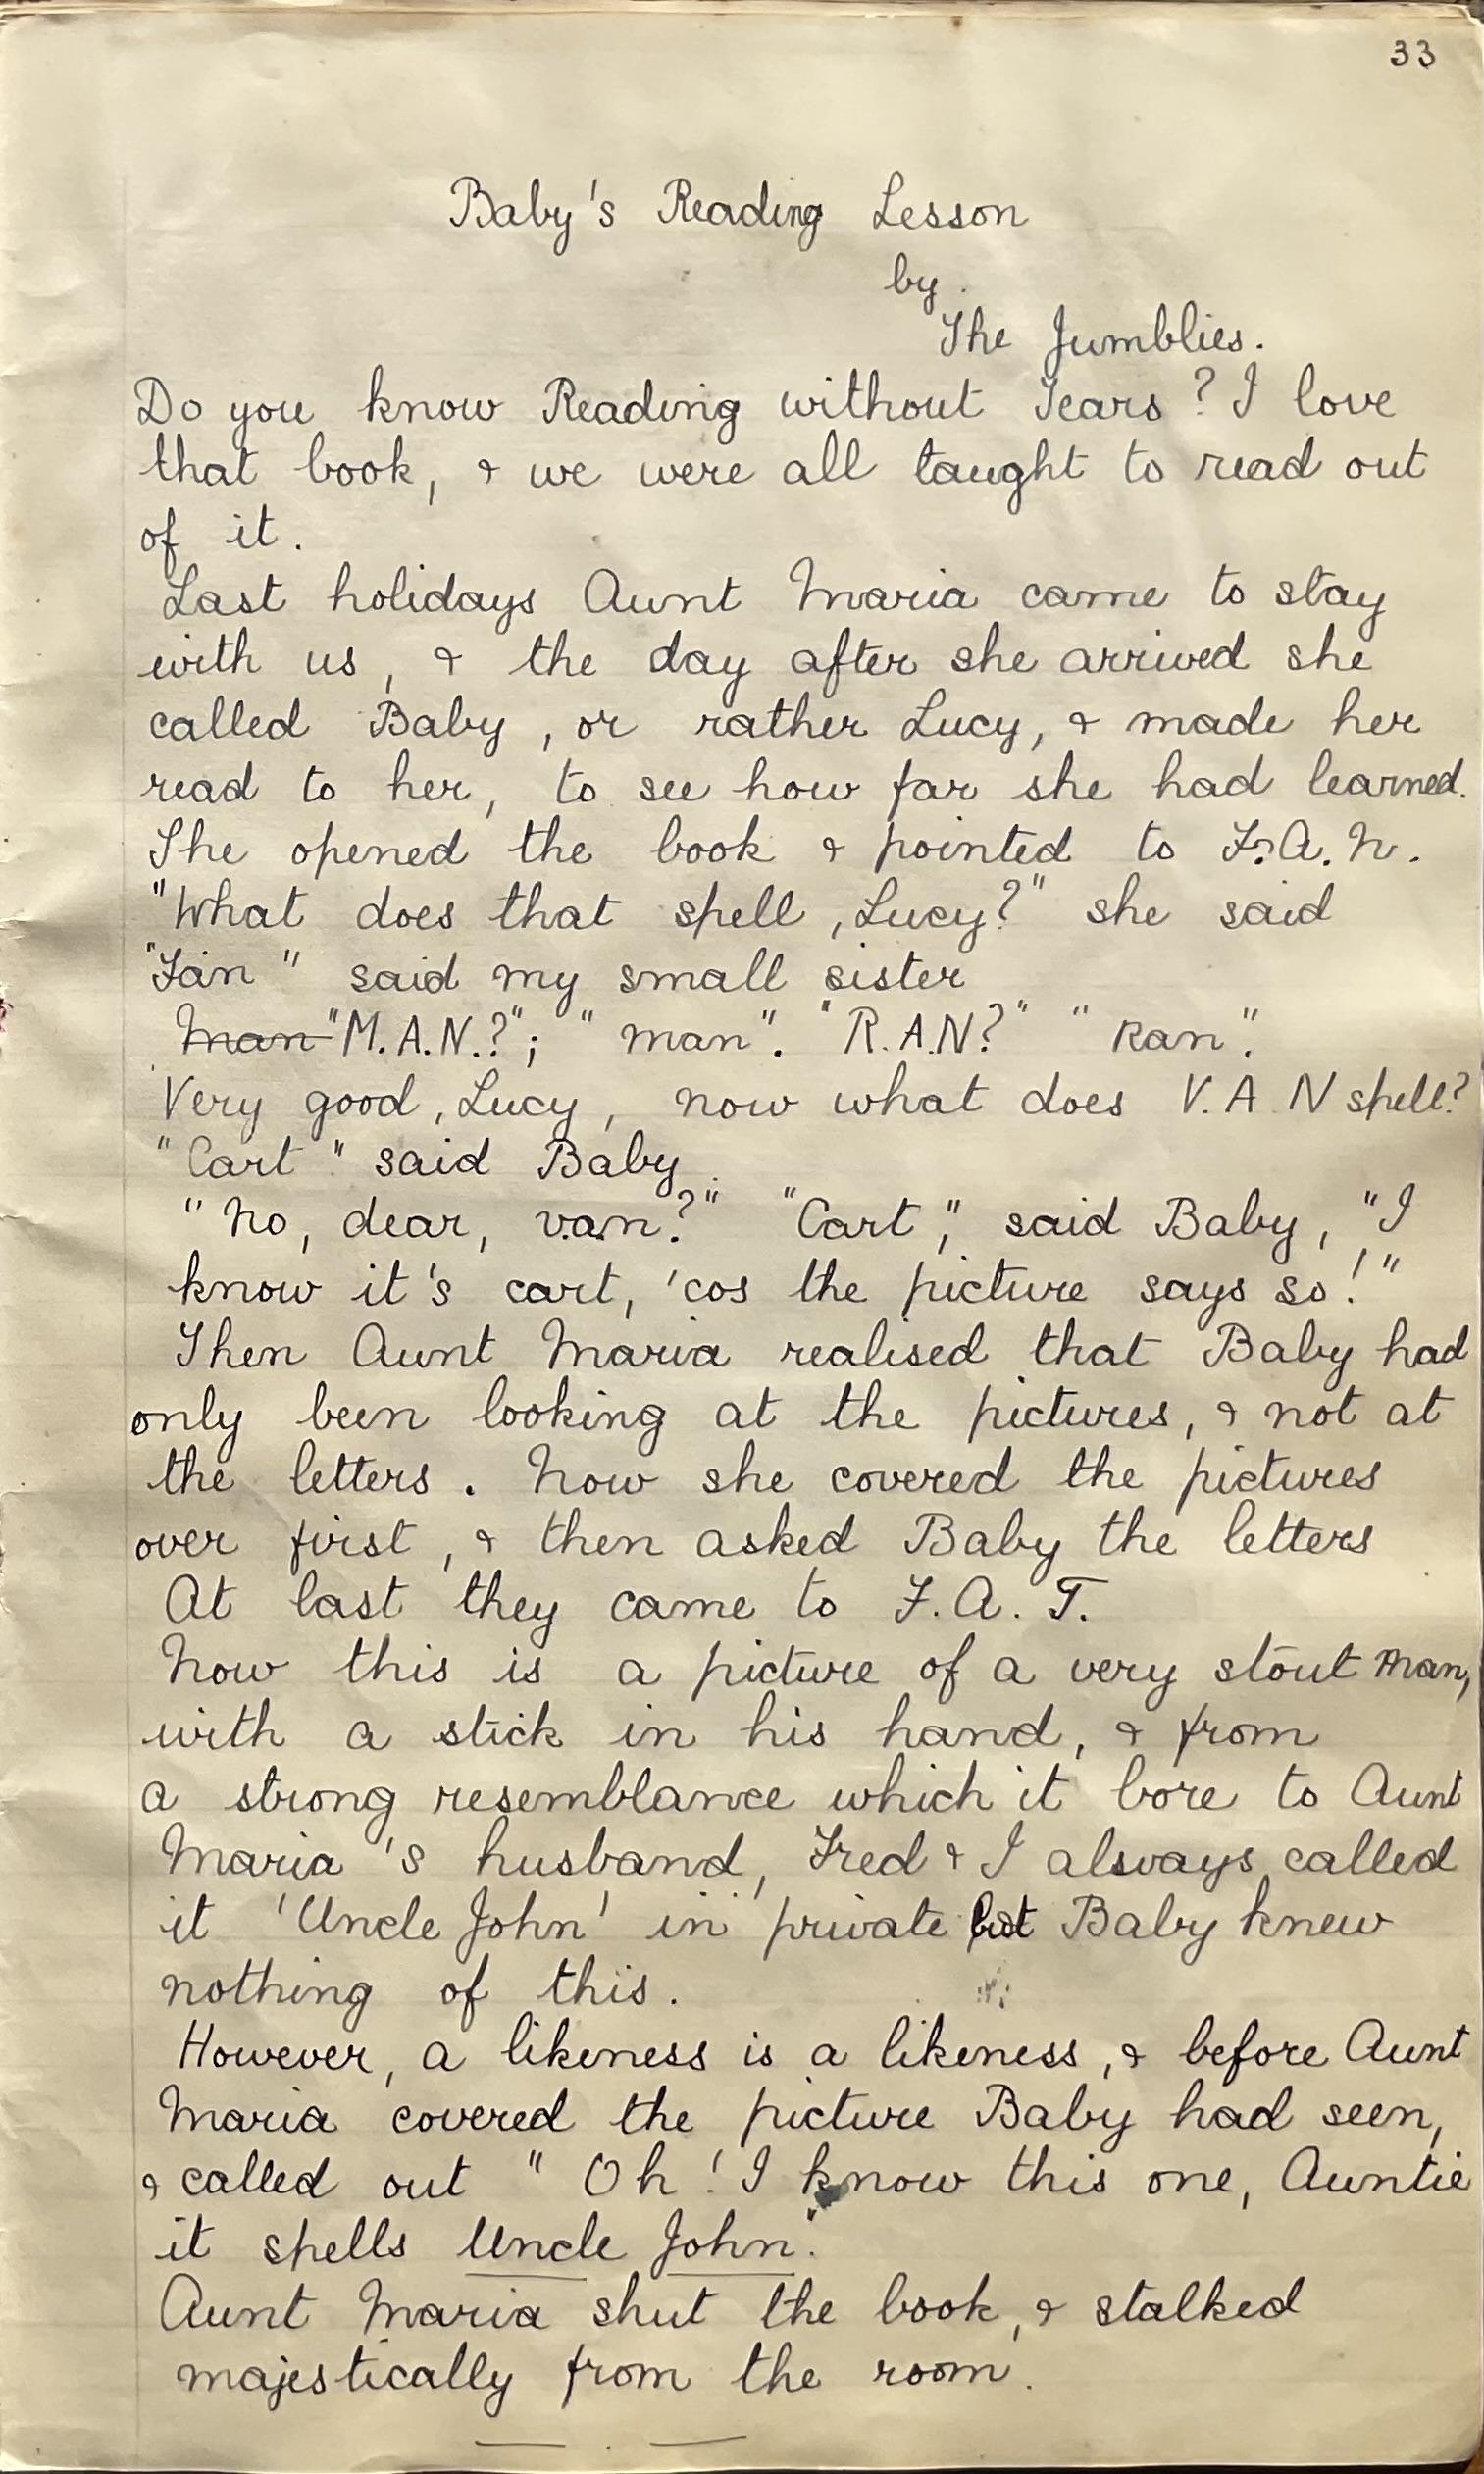 33
Baby's Reading Lesson
by
The Jumblies.
Do you know Reading without Tears? I love
that book, & we were all taught to read out
of it.
Last holidays Aunt Maria came to stay
with us, & the day after she arrived she
called Baby, or rather Lucy, & made her
read to her, to see how far she had learned.
She opened the book & pointed to F.A.N.
"What does that spell, Lucy?" she said
"Fan" said my small sister
Man "M.A.N.?"; "man". "R.A.N?" "Ran".
Very good, Lucy, now what does V.A N spell?
"Cart" said Baby.
"No, dear, v.a.n.?" "Cart," said Baby, "I
know it's cart, 'cos the picture says so!"
Then Aunt Maria realised that Baby had
only been looking at the pictures, & not at
the letters. Now she covered the pictures
over first, & then asked Baby the letters
At last they came to F.A.T.
Now this is a picture of a very stout man,
with a stick in his hand, & from
a strong resemblance which it bore to Aunt
Maria's husband, Fred & I always called
it 'Uncle John' in private but Baby knew
nothing of this.
However, a likeness is a likeness, & before Aunt
Maria covered the picture Baby had seen,
& called out "Oh! I know this one, Auntie
it spells Uncle John".
Aunt Maria shut the book, & stalked
majestically from the room.